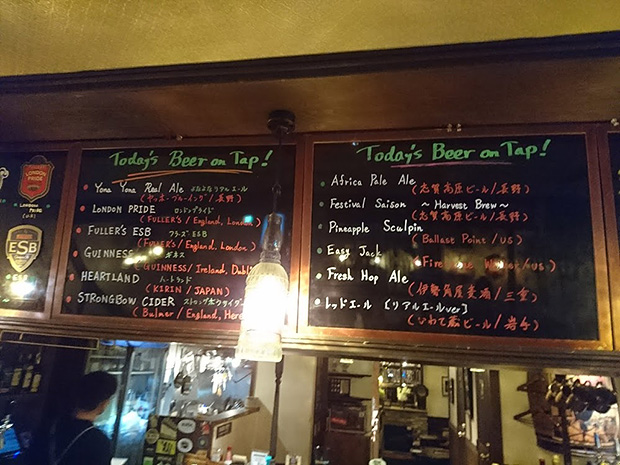 LONDON PRIDE
LONDON PRIDE
ESB
Today's Beer on Tap!
Yona Yona Real Ale よなよなリアルエール
(ヤッホーブルーイング/長野)
LONDON PRIDE ロンドンプライド
(FULLER'S / England, London)
FULLER'S ESB フラーズ ESB
(FULLER'S / England, London)
GUINNESS ギネス
(GUINNESS / Ireland, Dubli
HEARTLAND ハートランド
(KIRIN / JAPAN)
STRONGBOW CIDER ストロングボウサイダー
(Bulmer / England, Here
Today's Beer on Tap!
Africa Pale Ale
(志賀高原ビール/長野)
Festival Saison ~ Harvest Brew ~
(志賀高原ビール/長野)
Pineapple Sculpin
(Ballast Point / US)
Easy Jack
(Fire /US)
Fresh Hop Ale
(伊勢角屋麦酒/三重)
レッドエール [リアルエールver]
(いわて蔵ビール/岩手)